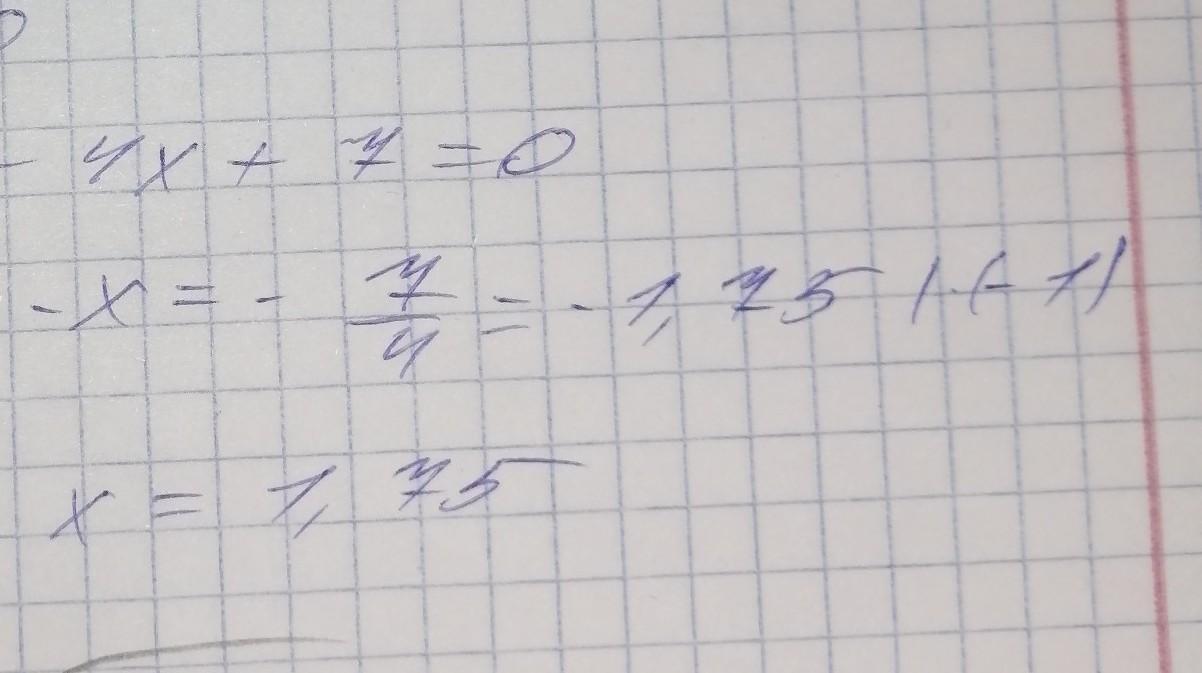 - 4x + 7 = 0
- x = - 7/4 = - 1,75 | · (- 1)
x = 1,75